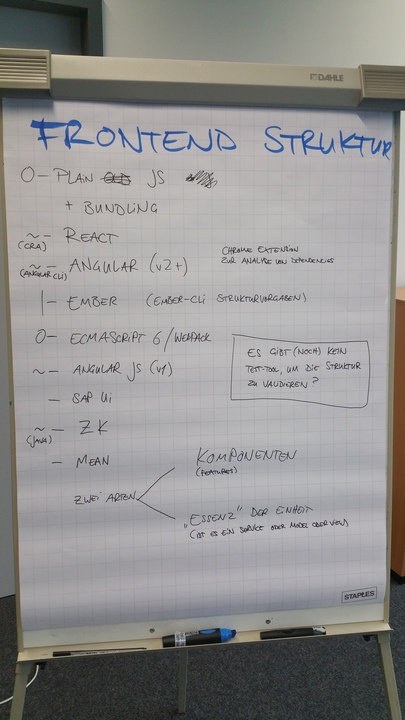 DAHLE
FRONTEND STRUKTUR
0- PLAIN JS
+ BUNDLING
~- REACT
(CRA)
~- ANGULAR (V2+)
(ANGULAR CLI)
CHROME EXTENSION
ZUR ANALYSE VON DEPENDENCIES
|- EMBER (EMBER-CLI STRUKTURVORGABEN)
0- ECMASCRIPT 6/WEBPACK
~- ANGULAR JS (V1)
ES GIBT (NOCH) KEIN
TEST-TOOL, UM DIE STRUKTUR
ZU VALIDIEREN?
- SAP Ui
~- ZK
(JAVA)
- MEAN
KOMPONENTEN
(FEATURES)
ZWEI ARTEN
„ESSENZ" DER EINHEIT
(IST ES EIN SERVICE ODER MODEL ODER VIEW)
STAPLES